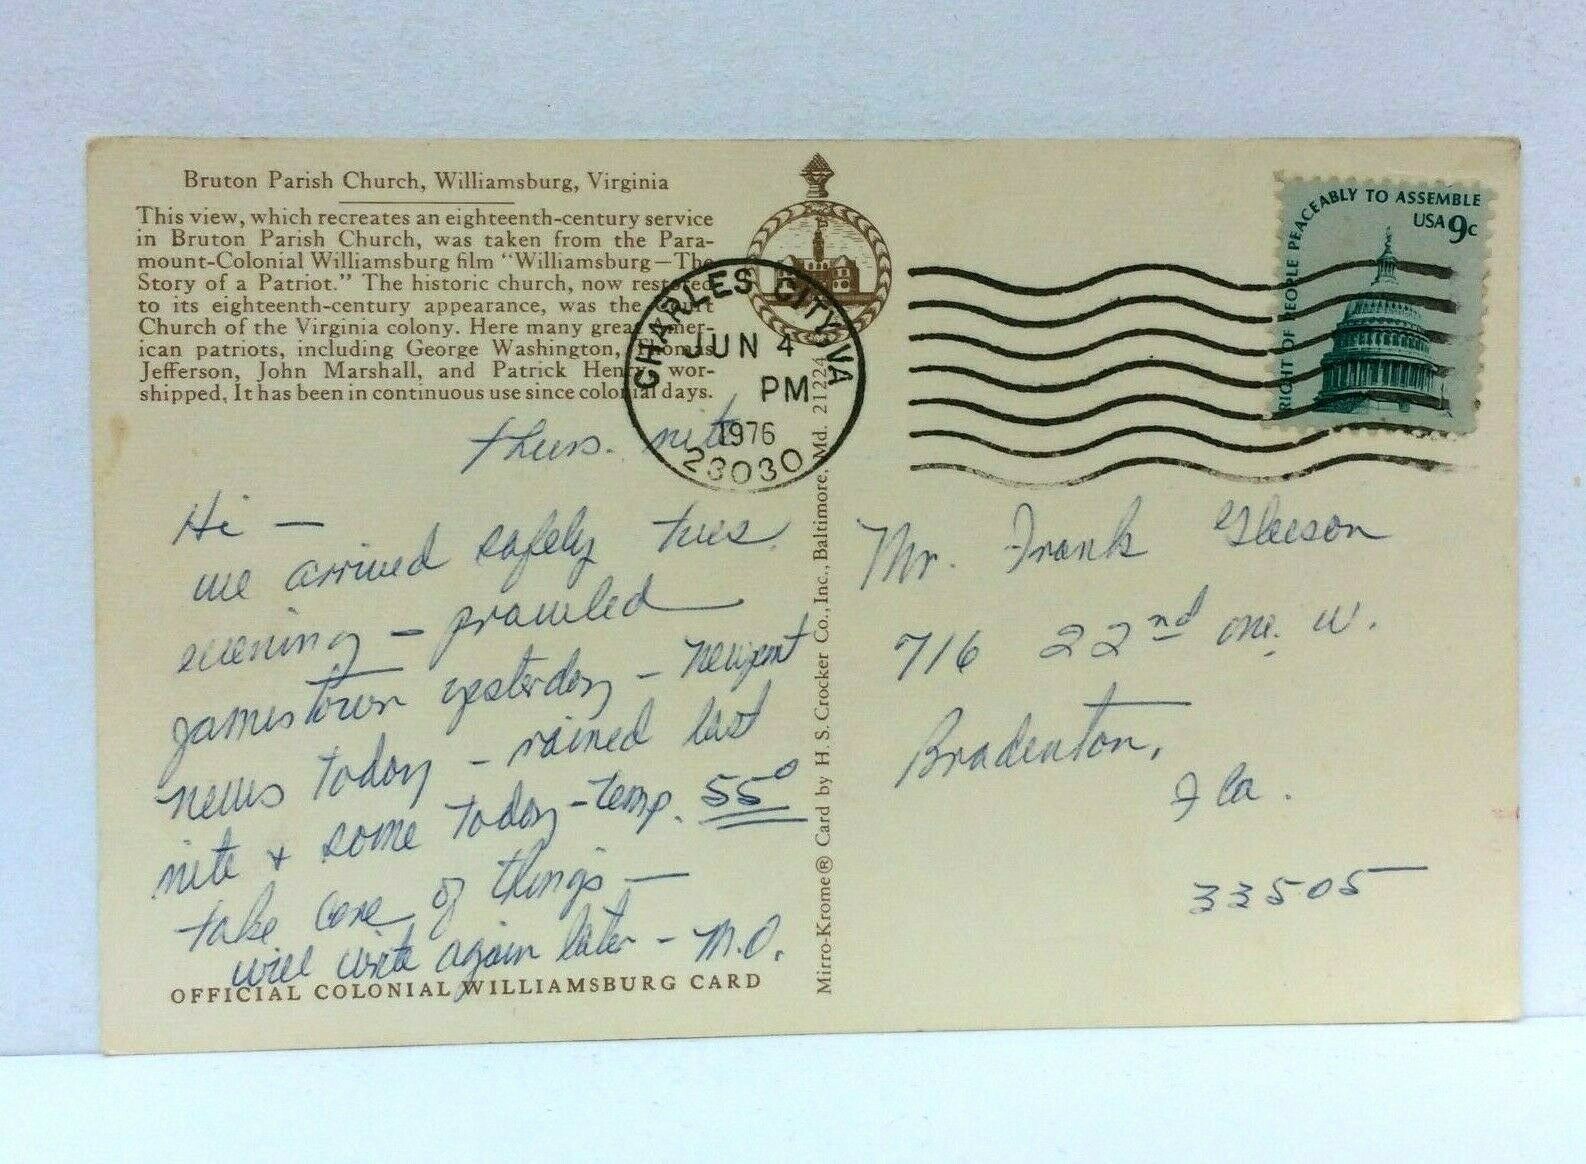 Bruton Parish Church, Williamsburg, Virginia
This view, which recreates an eighteenth-century service
in Bruton Parish Church, was taken from the Para-
mount-Colonial Williamsburg film "Williamsburg—The
Story of a Patriot." The historic church, now restored
to its eighteenth-century appearance, was the Court
Church of the Virginia colony. Here many great Amer-
ican patriots, including George Washington, Thomas
Jefferson, John Marshall, and Patrick Henry, wor-
shipped. It has been in continuous use since colonial days.
thurs. nite
Hi —
we arrived safely tues.
evening — prowled
Jamestown yesterday — Newport
News today — rained last
nite + some today — temp. 55°
take care of things —
will write again later — M.O.
OFFICIAL COLONIAL WILLIAMSBURG CARD
Mirro-Krome® Card by H. S. Crocker Co., Inc., Baltimore, Md. 21224
CHARLES CITY, VA
JUN 4
PM
1976
23030
RIGHT OF PEOPLE PEACEABLY TO ASSEMBLE
USA 9c
Mr. Frank Gleeson
716 22nd ave. W.
Bradenton,
Fla.
33505